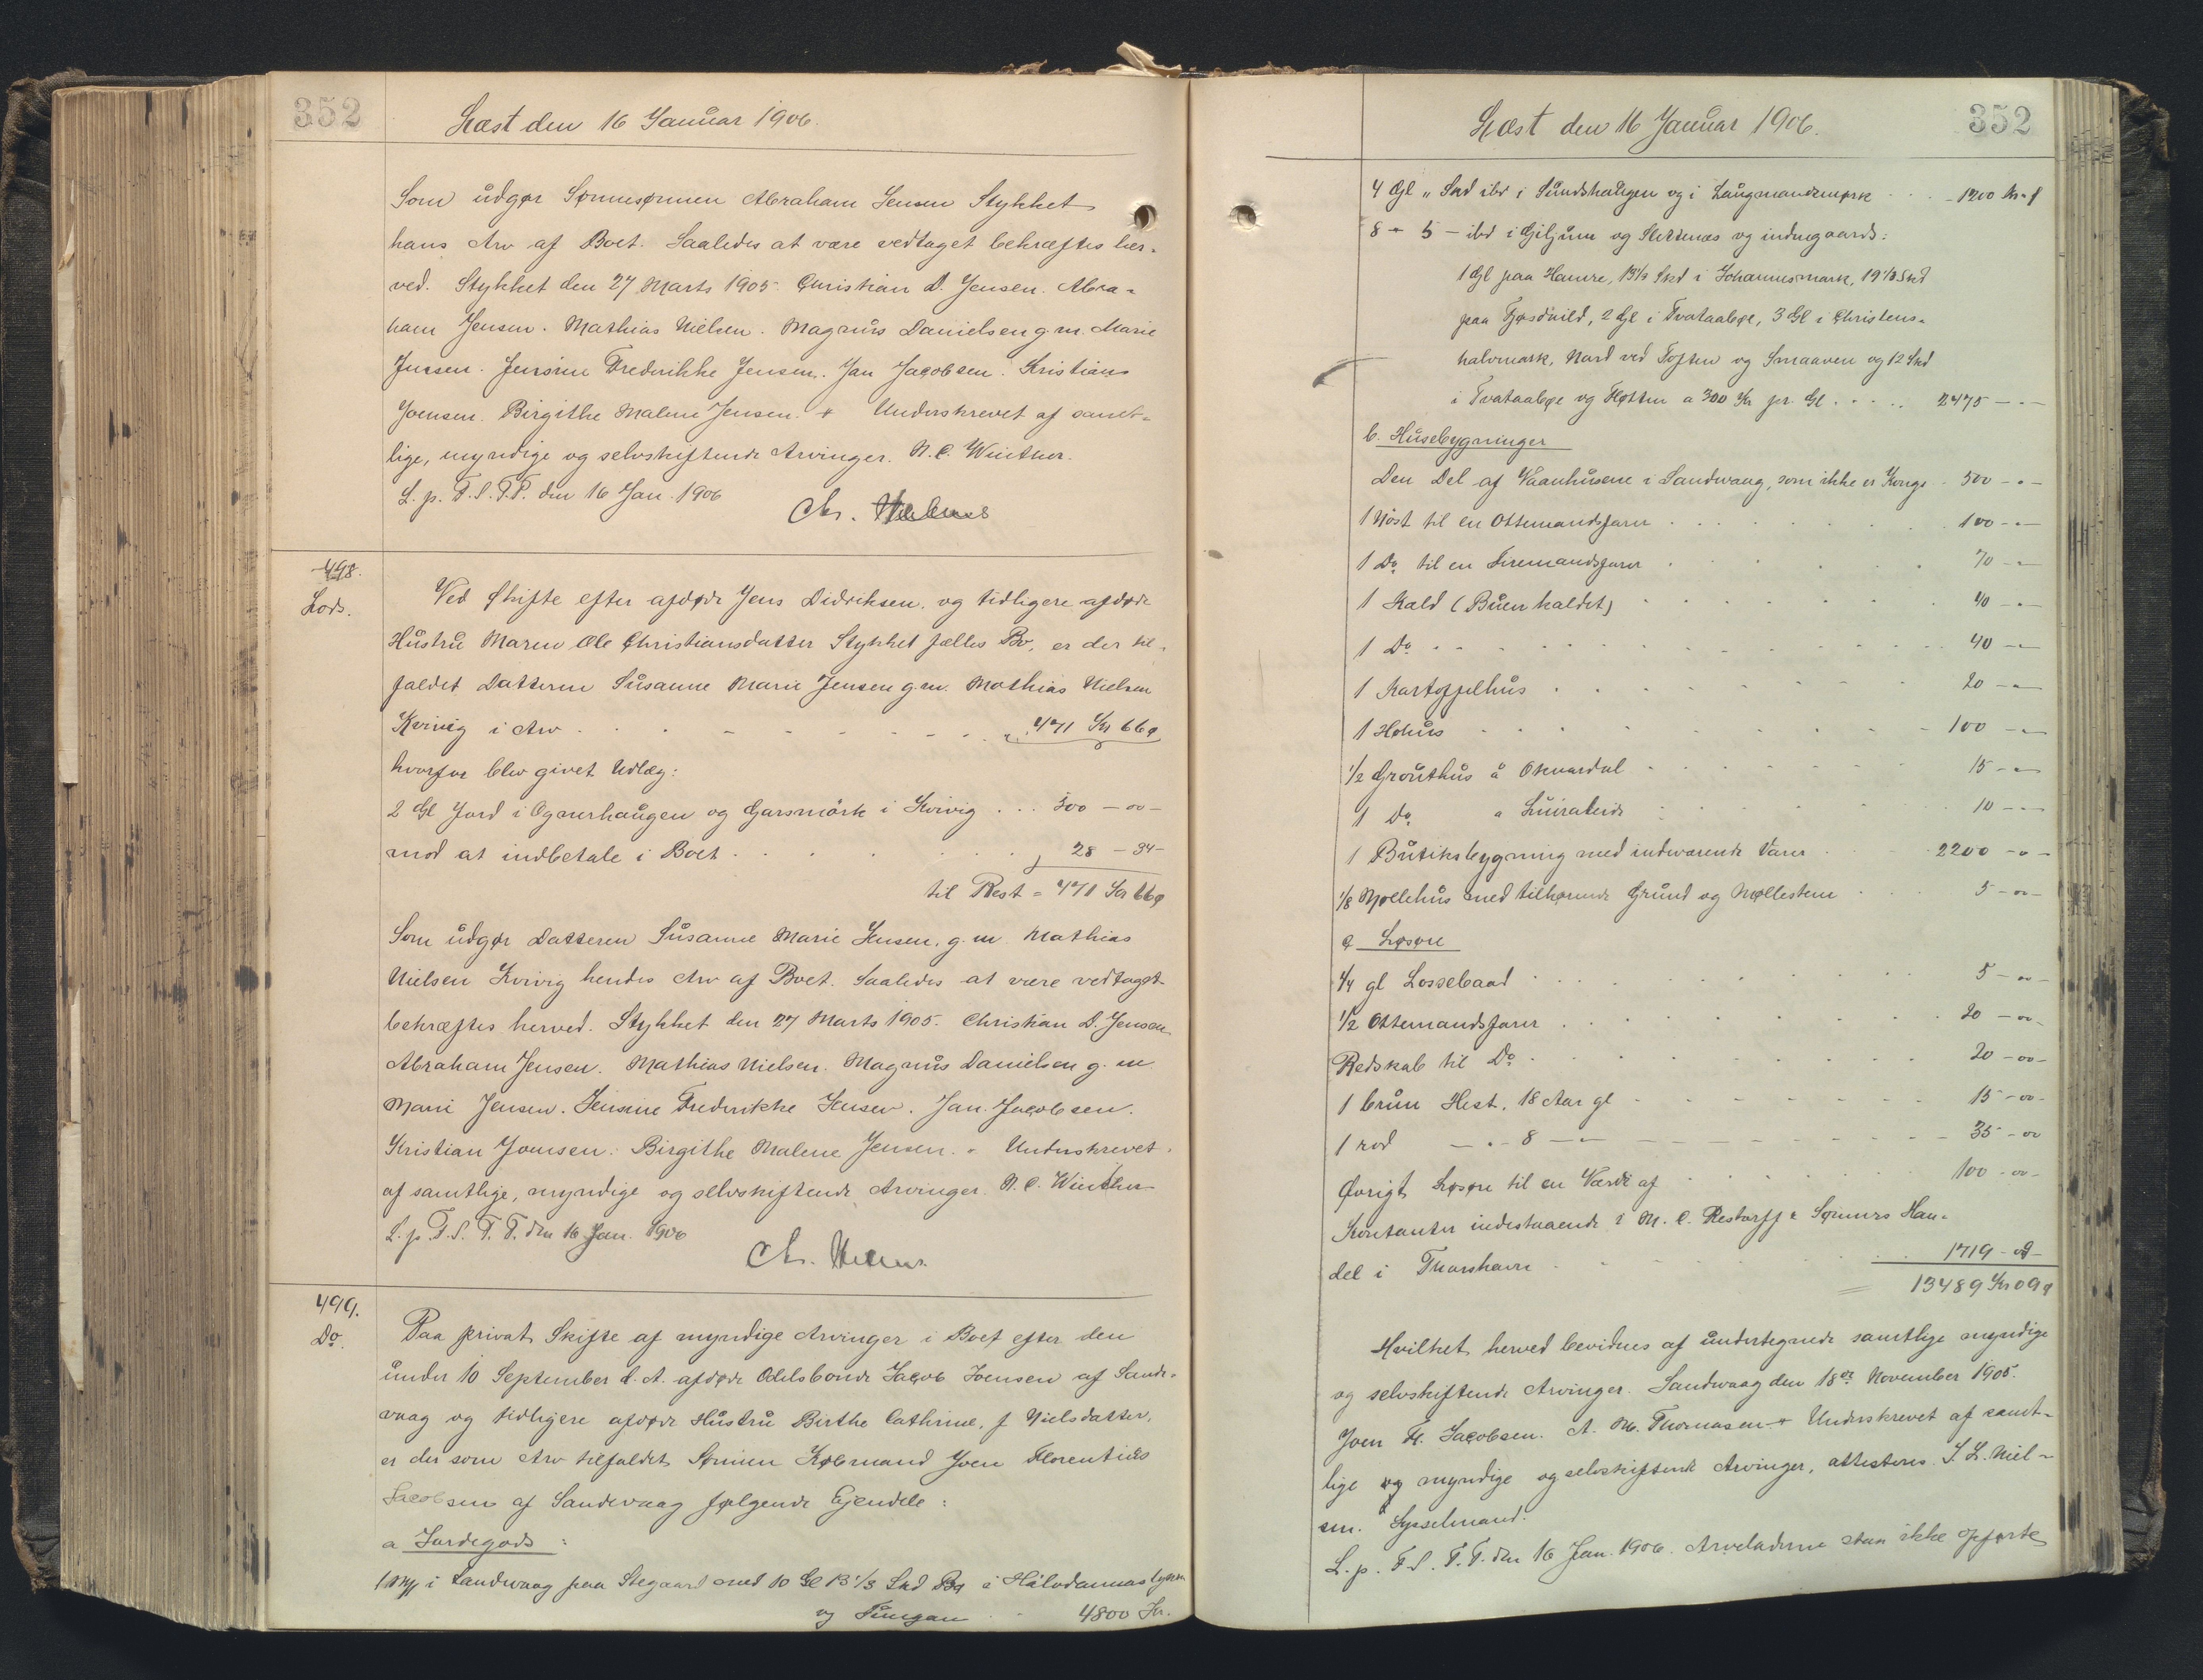 352
Læst den 16 Januar 1906.
Som udgør Sønnesønnen Abraham Jensen Stykket
hans Arv af Boet. Saaledes at være vedtaget bekræftes her-
ved. Stykket den 27 Marts 1905. Christian D. Jensen. Abra-
ham Jensen. Mathias Nielsen. Magnus Danielsen g. m. Marie
Jensen. Jensine Frederikke Jensen. Jan Jacobsen. Kristian
Joensen. Birgithe Malene Jensen. + Underskrevet af samt-
lige, myndige og selvskiftende Arvinger. N. C. Winther.
L. p. F. S. T. P. den 16 Jan. 1906
Chr.
498.
Lods.
Ved Skifte efter afdøde Jens Didriksen, og tidligere afdøde
Hustru Maren Ole Christiansdatter Stykket fælles Bo, er der til-
faldet Datteren Susanne Marie Jensen g. m. Mathias Nielsen
Kvivig i Arv . . . 471 Kr 66 ø
hvorfor blev givet Udlæg:
2 Gl Jord i Ognerhaugen og Garsmörk i Kvivig . . . 500 — 00 —
mod at indbetale i Boet . . . 28 — 34 —
til Rest = 471 Kr 66 ø
Som udgør Datteren Susanne Marie Jensen, g. m. Mathias
Nielsen Kvivig hendes Arv af Boet. Saaledes at være vedtaget
bekræftes herved. Stykket den 27 Marts 1905. Christian D. Jensen
Abraham Jensen. Mathias Nielsen. Magnus Danielsen g. m.
Marie Jensen. Jensine Frederikke Jensen. Jan. Jacobsen.
Kristian Joensen. Birgithe Malene Jensen. + Underskrevet
af samtlige, myndige og selvskiftende Arvinger. N. C. Winther
L. p. F. S. T. P. den 16 Jan. 1906
Chr.
499.
Do.
Paa privat Skifte af myndige Arvinger i Boet efter den
under 10 September d. A. afdøde Odelsbonde Jacob Joensen af Sande-
vaag og tidligere afdøde Hustru Birthe Cathrine, f. Nielsdatter,
er der som Arv tilfaldet Sønnen Købmand Joen Florentius
Jacobsen af Sandevaag følgende Ejendele:
a Jordegods:
1 Mk i Sandevaag paa Stegaard med 10 Gl 13 1/3 Skd
og Tungan . . 4800 Kr.
352
Læst den 16 Januar 1906.
4 Gl „ Skd ibd i Sundshaugen og i Laugmandsmørk . . . 1200 Kr - ø
8 - 5 - ibd i Giljum og Slettenæs og indnegaards:
1 Gl paa Hamre, 13 1/3 Skd i Johannesmark, 19 1/3 Skd
paa , 2 Gl i Tvataabøe, 3 Gl i Christens-
halvmark, Nord ved Toften og Smaaven og 12 Skd
i Tvataabøe og Fløtten a 300 Kr pr. Gl . . . 2475 — " —
b. Husebygninger
Den Del af Vaanhusene i Sandevaag, som ikke er Kongs . 500 - " —
1 Nöst til en Ottemandsfarer . . . 100 - " —
1 Do til en Firemandsfarer . . . 70 — "
1 Kald (Buen kaldet) . . . 40 — " —
1 Do . . . 40 — "
1 Kartoffelhus . . . 20 — "
1 Höhus . . . 100 — "
1/2 Grouthus å . . . 15 — "
1 Do . . . 10 — "
1 Butiksbygning med indværende Varer . . . 2200 — " —
1/8 Møllehus med tilhørende Grund og Møllesten . . . 5 — 00 —
c Løsøre
1/4 gl Lossebaad . . . 5 — 00 —
1/2 Ottemandsfarer . . . 20 — 00 -
Redskab til Do . . . 20 — 00 -
1 brun Hest, 18 Aar gl . . . 15 — 00 -
1 rød — " — 8 — " — . . . 35 — 00
Øvrigt Løsøre til en Værdi af . . . 100 - 00 -
Kontanter indestaaende i M. C. Restorff & Sønners Han-
del i Thorshavn . . . 1719 - 09 -
= 13489 Kr 09 ø
Hvilket herved bevidnes af undertegnede samtlige myndige
og selvskiftende Arvinger. Sandevaag den 18de November 1905.
Joen Fl. Jacobsen. A. M. Thomasen + Underskrevet af samt-
lige og myndige og selvskiftende Arvinger, attesteres. J. L. Niel-
sen. Sysselmand.
L. p. F. S. T. P. den 16 Jan. 1906. Arveladerne staa ikke opførte